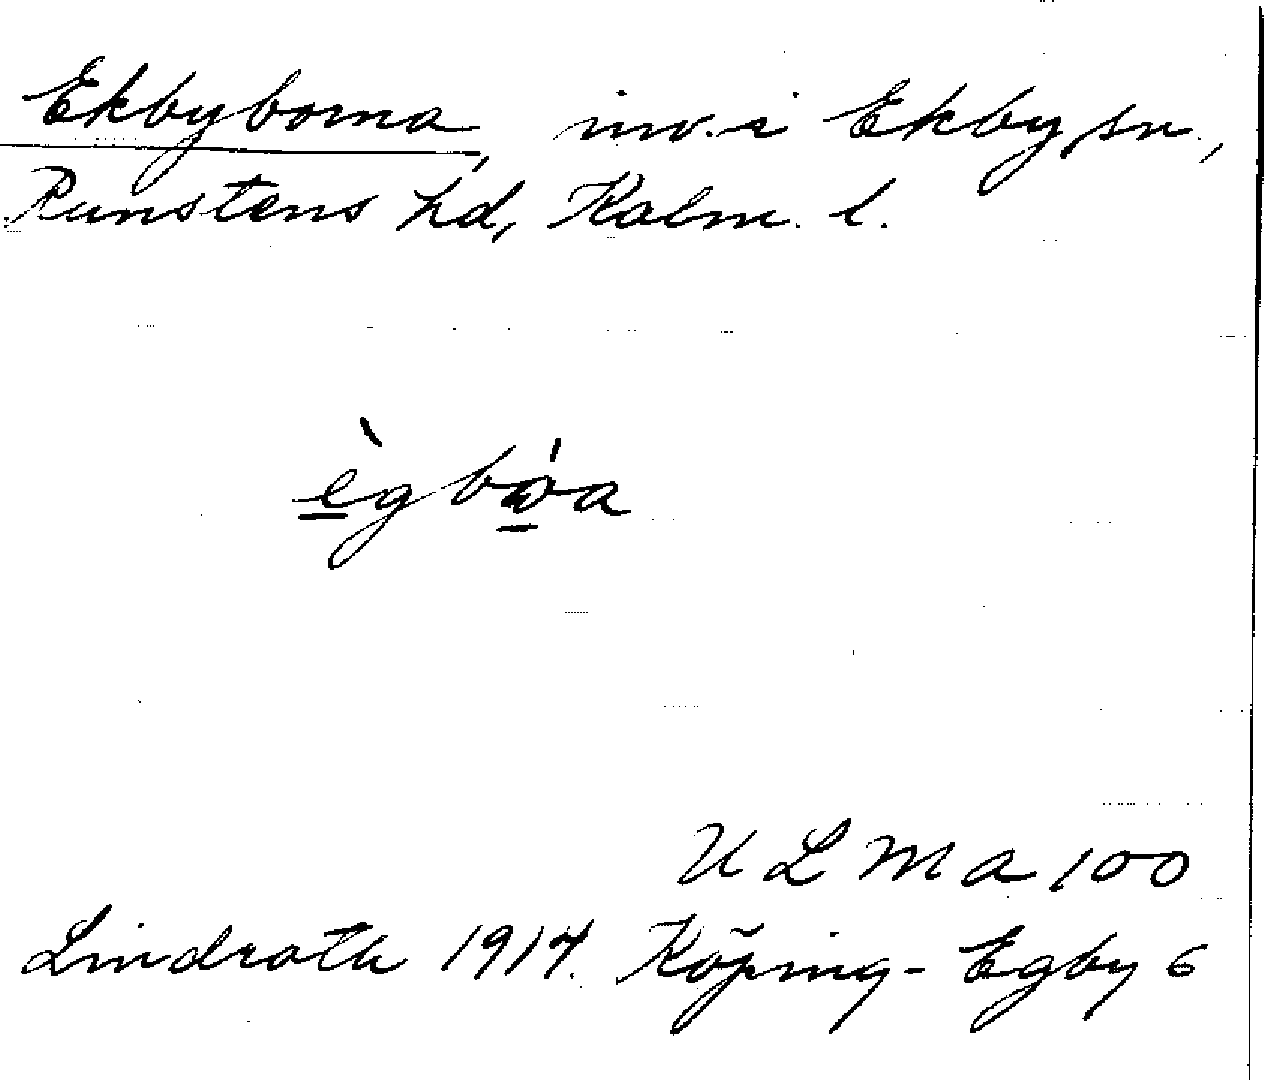 Ekbyborna, inv. i Ekby sn,
Runstens hd, Kalm. l.
ègbóa
ULMA 100
Lindroth 1914. Köping-Egby 6